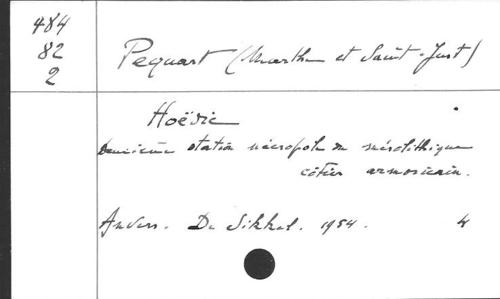 484
82
2
Pequart (Marthe et Saint-Just)
Hoëdic
Deuxième station nécropole du mésolithique
côtier armoricain.
Anvers. De Sikkel. 1954. 4